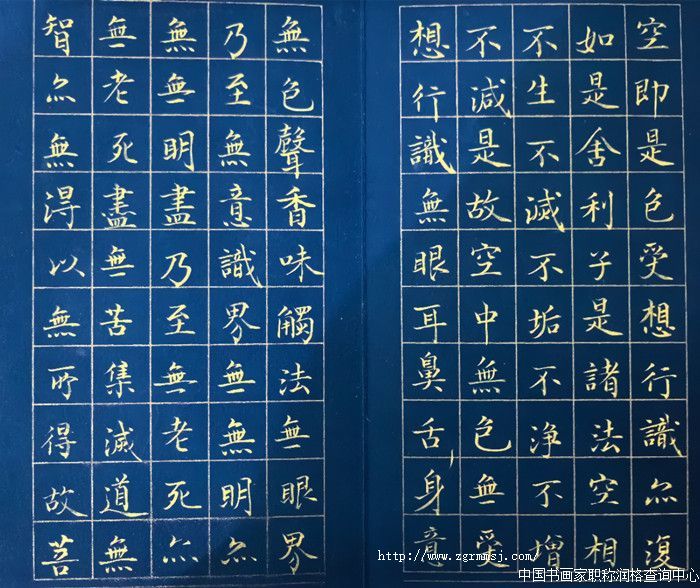 空即是色受想行識亦復
如是舍利子是諸法空相
不生不滅不垢不淨不增
不減是故空中無色無受
想行識無眼耳鼻舌身意
無色聲香味觸法無眼界
乃至無意識界無無明亦
無無明盡乃至無老死亦
無老死盡無苦集滅道無
智亦無得以無所得故菩
http://www.zgrmmsj.com
中国书画家职称润格查询中心